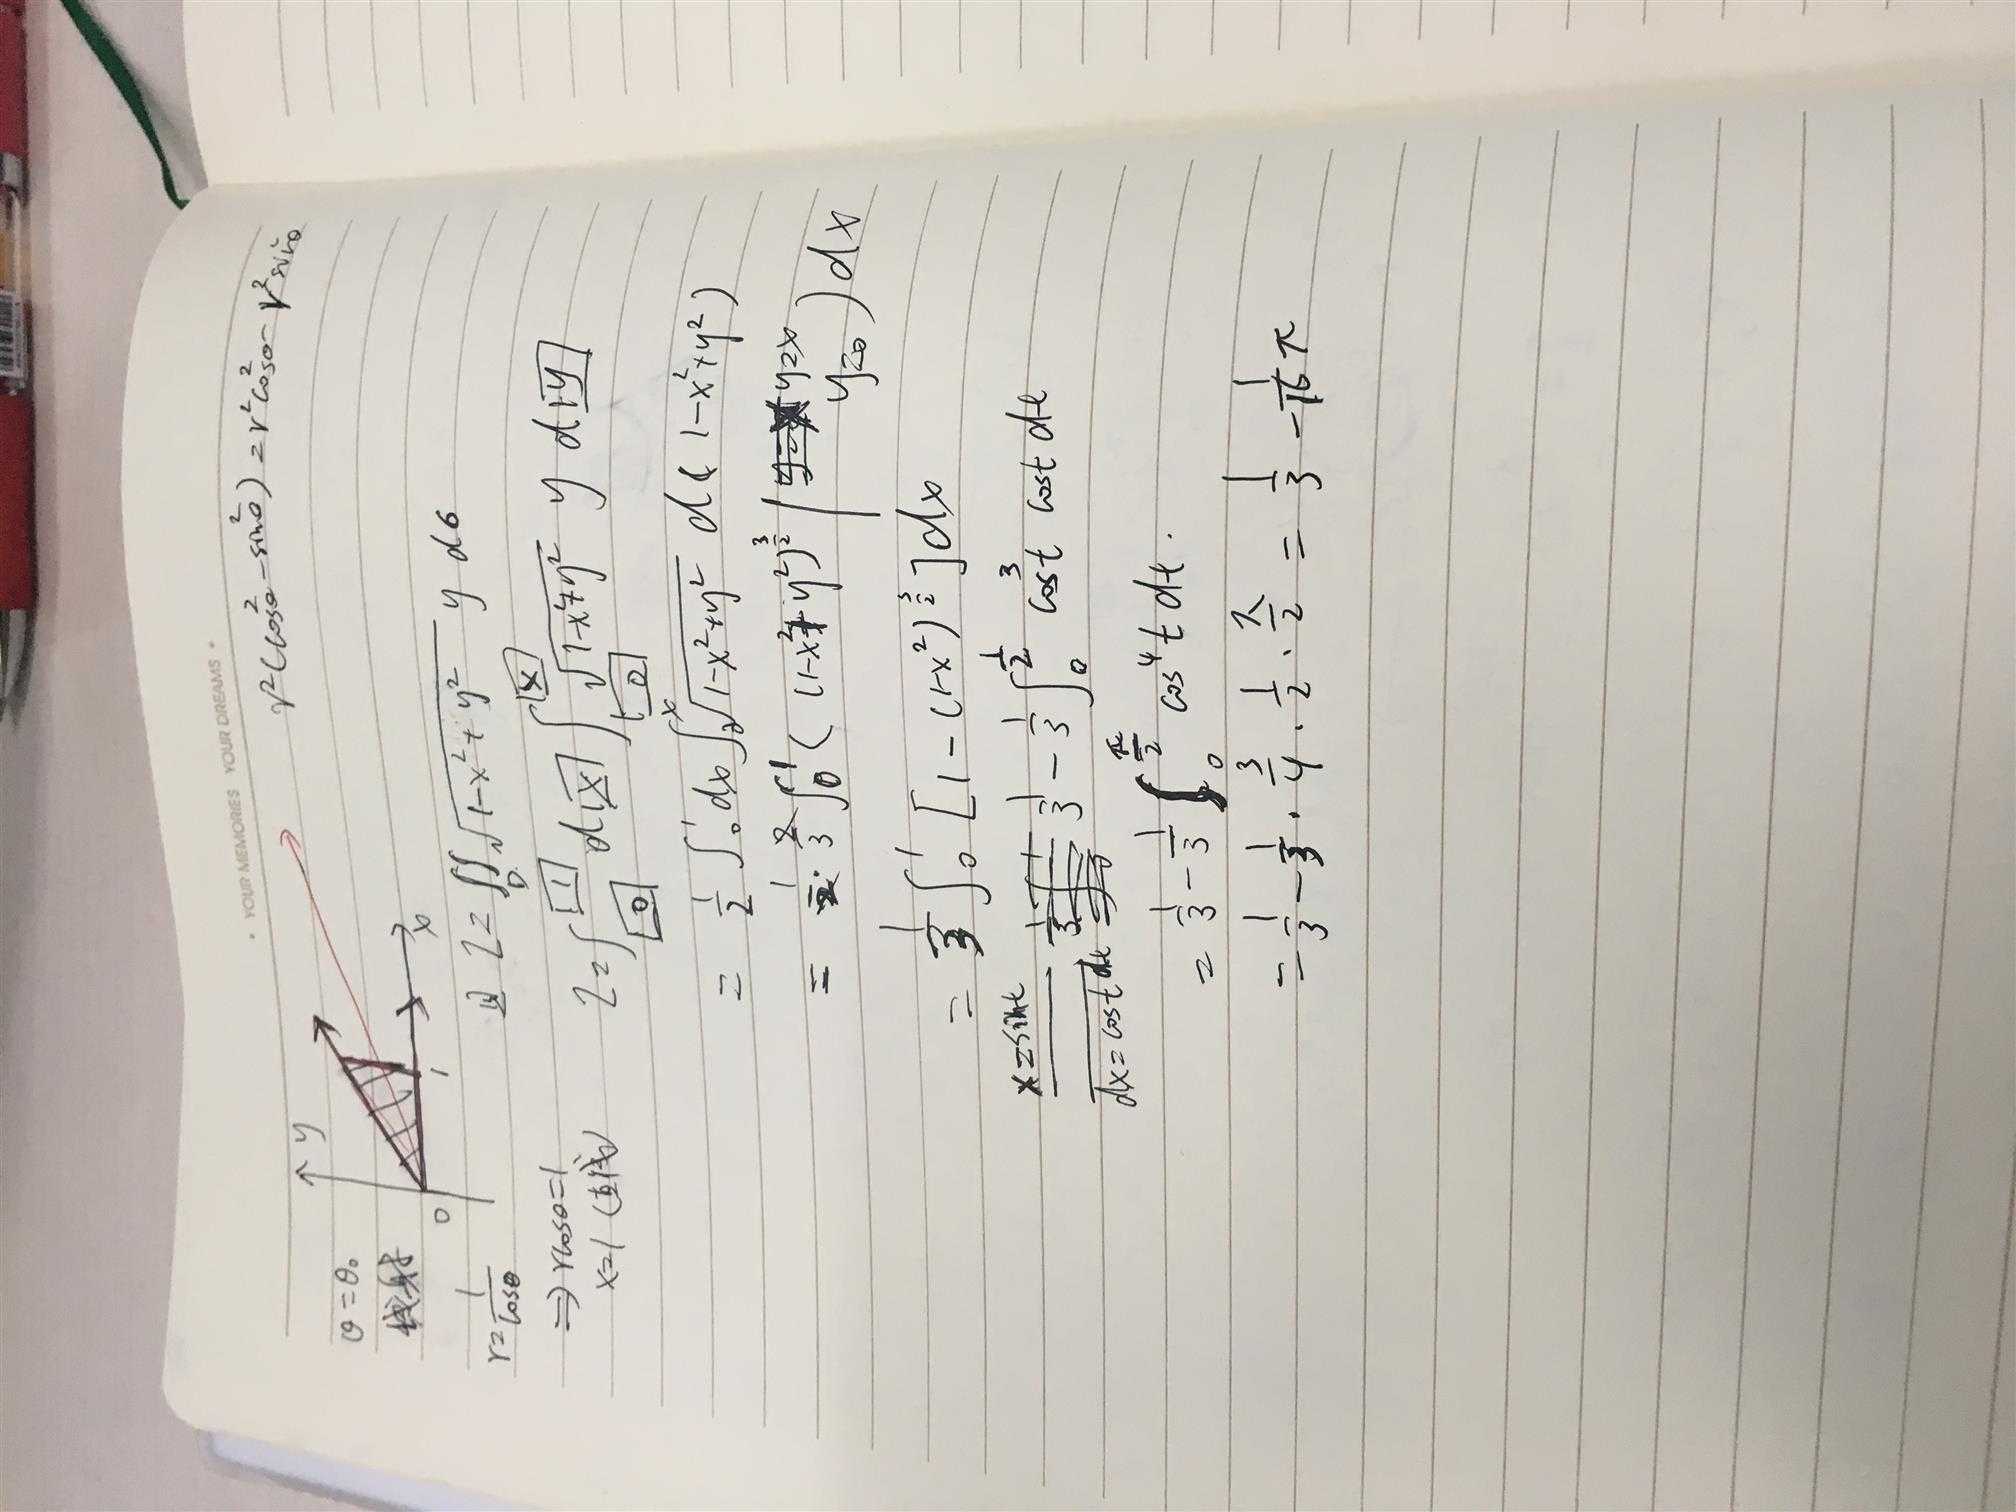 • YOUR MEMORIES YOUR DREAMS •
r²(cos²θ-sin²θ)=r²cos²θ-r²sin²θ
y
θ=θ₀
0
1
x
r=1/cosθ
⇒ rcosθ=1
x=1
I=∬_D √(1-x²+y²) y dσ
I=∫_0^1 dx ∫_0^x √(1-x²+y²) y dy
=1/2 ∫_0^1 dx ∫_0^x √(1-x²+y²) d(1-x²+y²)
=1/2·2/3 ∫_0^1 ((1-x²+y²)^(3/2) | y=x y=0) dx
=1/3 ∫_0^1 [1-(1-x²)^(3/2)] dx
x=sint
dx=costdt
1/3-1/3 ∫_0^(1/2) cos³t cost dt
=1/3-1/3 ∫_0^(π/2) cos⁴t dt.
=1/3-1/3·3/4·1/2·π/2=1/3-1/16 π